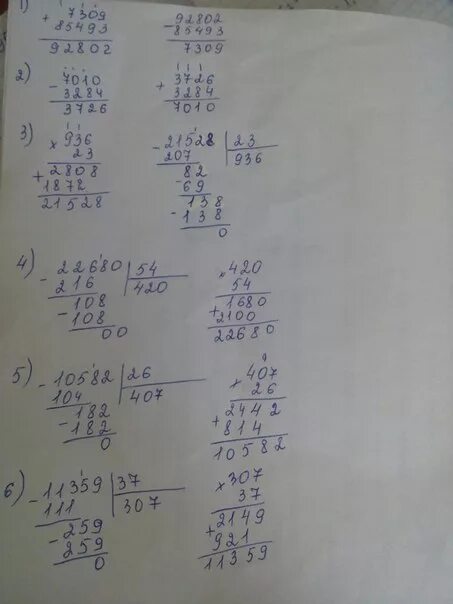 1) + 7309   - 92802
85493   85493
92802   7309
2) - 7010   + 3726
3284   3284
3726   7010
3) × 936   - 21528 | 23
23   207   936
+ 2808   82
1878   - 69
21528   138
- 138
0
4) - 22680 | 54   × 420
216   420   54
108   + 1680
- 108   2100
00   22680
5) - 10582 | 26   × 407
104   407   26
182   + 2442
- 182   814
0   10582
6) - 11359 | 37   × 307
111   307   37
259   + 2149
- 259   921
0   11359